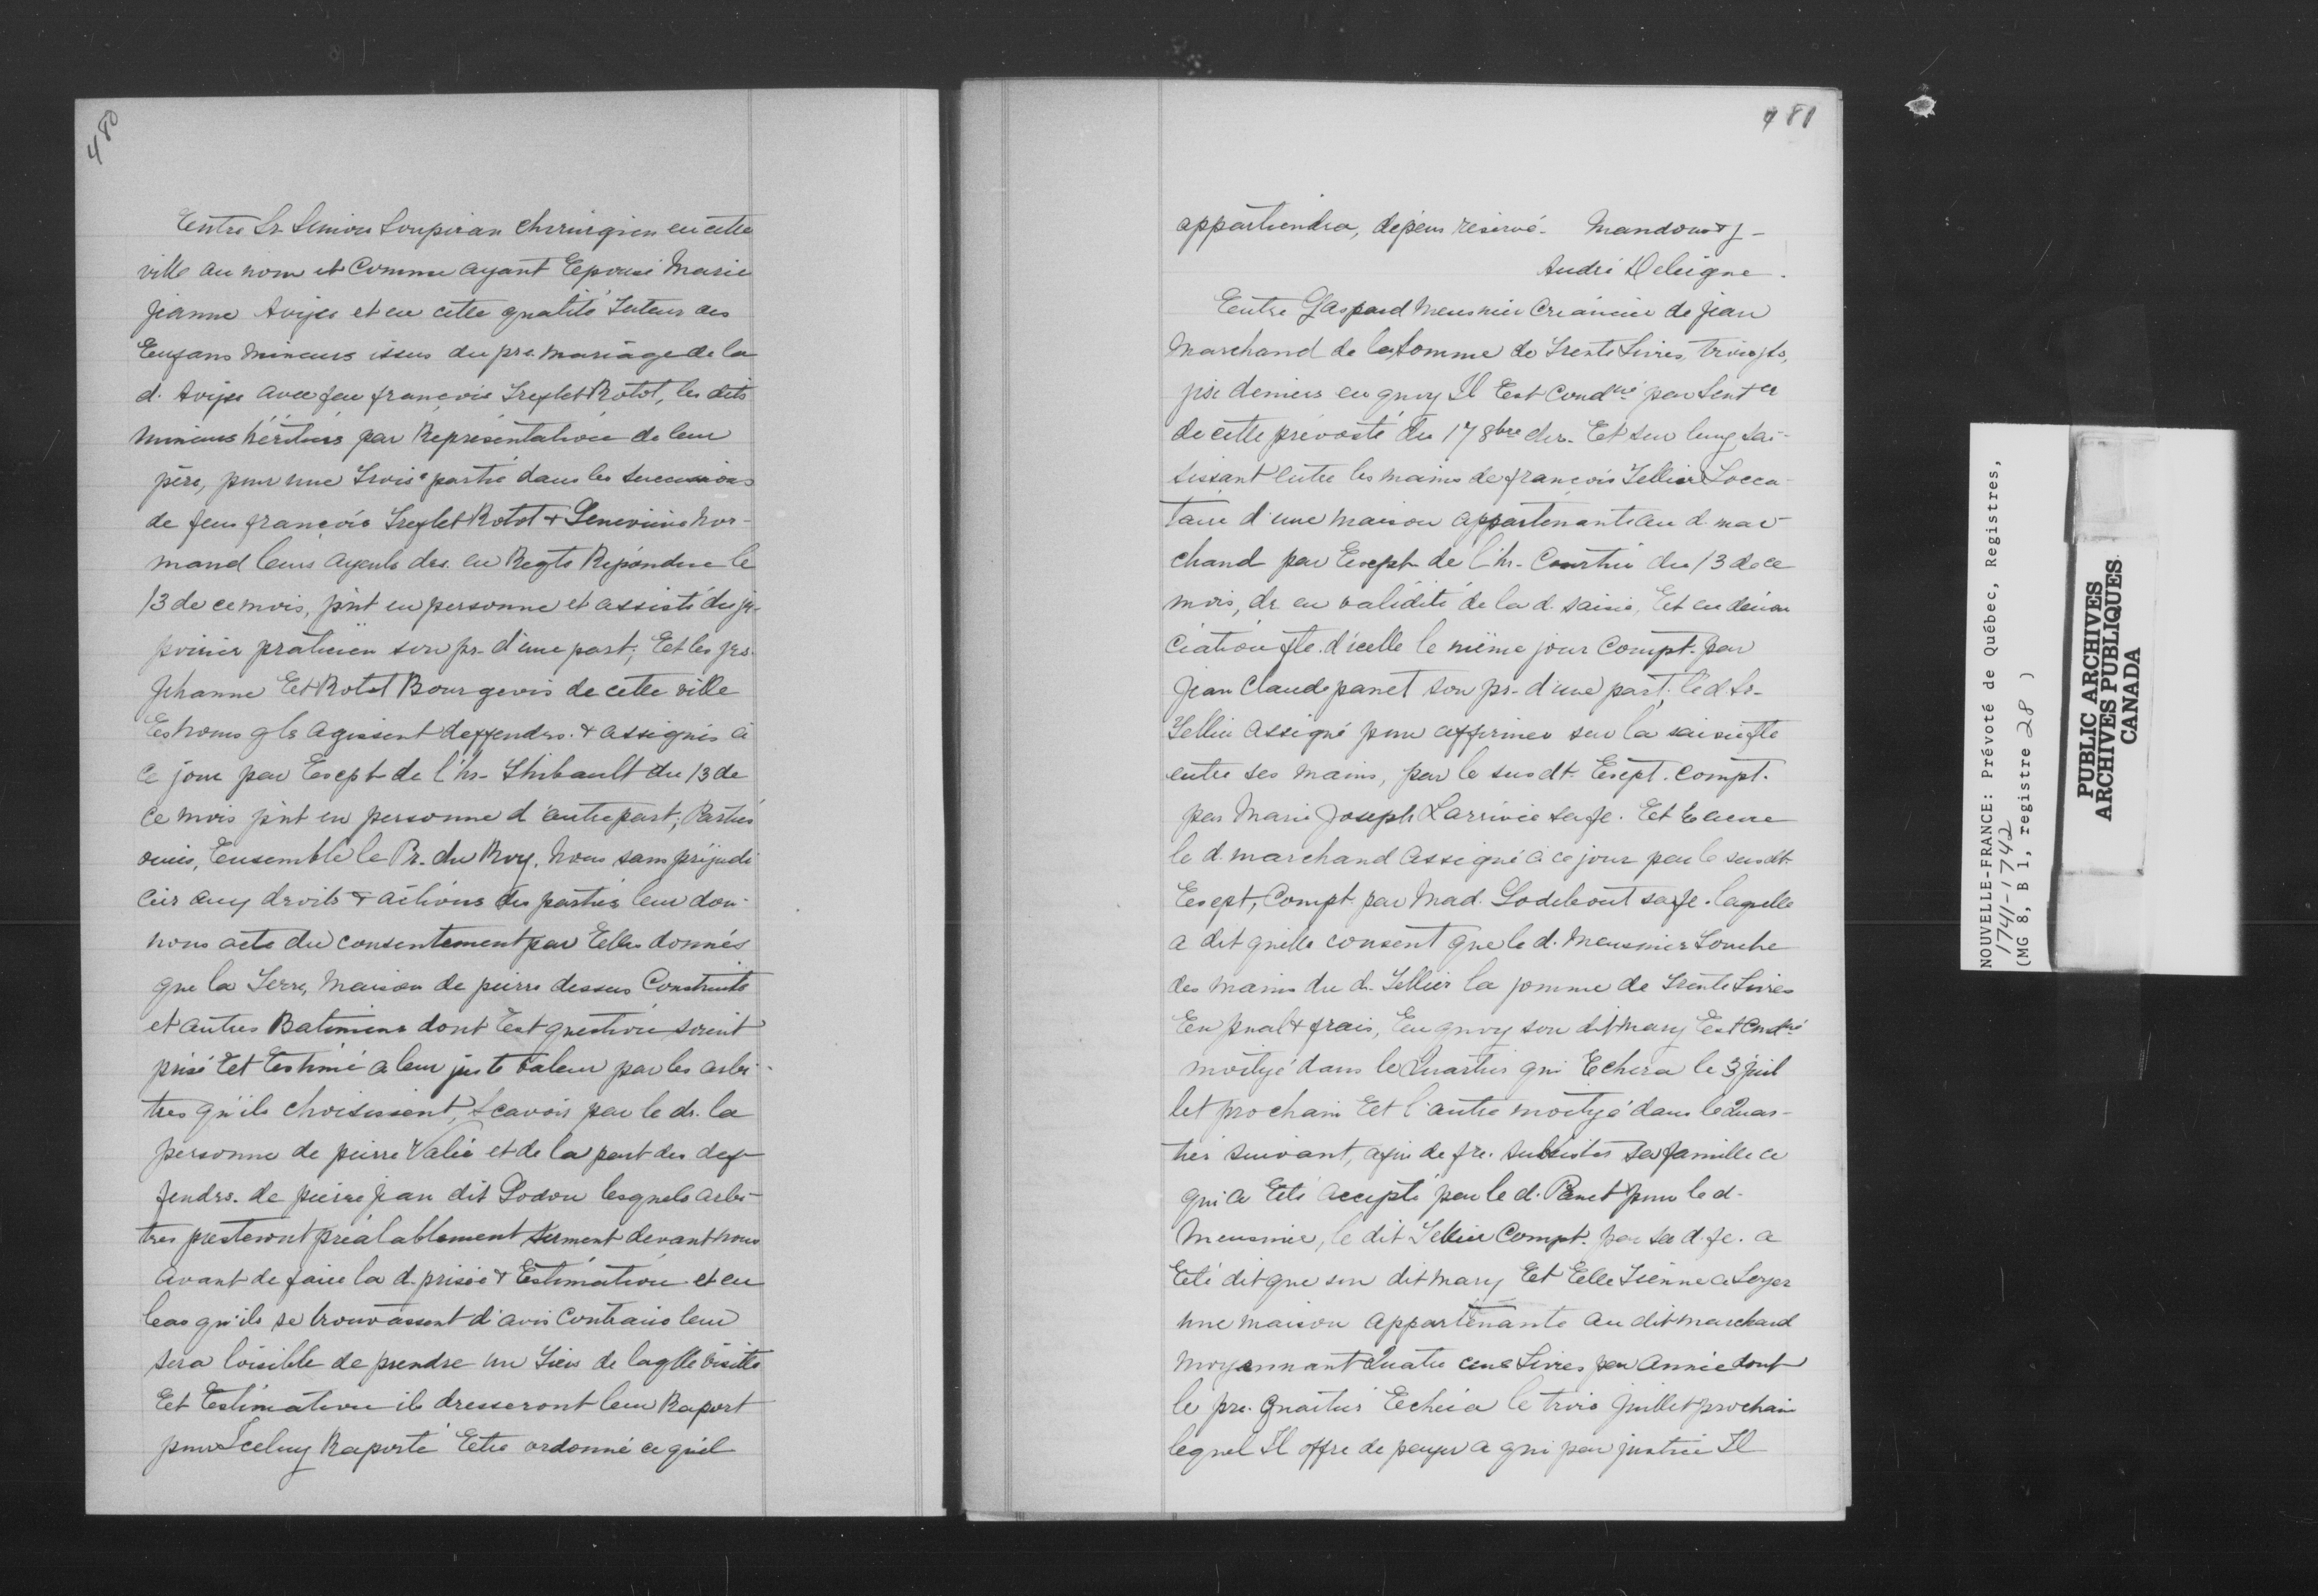 480
Entre Sr Simon Soupiran chirurgien en cette
ville au nom et Comme ayant Epousé Marie
Jeanne Avijes et en cette qualité Tuteur des
Enfans Mineurs issus du pre. mariage de la
d. Avijes avec feu françois Treflet Rotot, les dits
Mineurs héritiers par Représentation de leur
père, pour une Trois.e partie dans les successions
de feus françois Treflet Rotot & Genevieve Nor-
mand leurs ayeuls drs. en Reqte Répondue le
13 de ce mois, pint en personne et assisté du Jr.
poirier praticien son pr. d'une part; Et les Jrs.
Jehanne Et Rotot Bourgeois de cette ville
Es noms qls agissent deffendrs. & assignés à
Ce jour par Exept de l'hr. Thibault du 13 de
Ce mois pint en personne d'autre part; Parties
ouies, Ensemble le Pr. du Roy. Nous sans préjudi-
cier aux droits & actions des parties leur don-
nons acte du consentement par Elles donnés
que la Terre, Maison de pierre dessus Construite
et autres Batimens dont Est question soient
prisé Et Estimé a leur juste valeur par les arbi-
tres qu'ils choisissent, scavoir par le dr. la
personne de pierre Valié et de la part des def-
fendrs. de pierre Jean dit Godon lesquels arbi-
tres presteront préalablement serment devant nous
avant de faire la d. prisée & Estimation et en
Cas qu'ils se trouvassent d'avis Contraire leur
sera loisible de prendre un Tiers de laqlle visitte
Et Estimation ils dresseront leur Raport
pour Iceluy Raporté Etre ordonné ce qu'il
481
appartiendra, dépens réservé. Mandons & J-
André Deleigne.
Entre Gaspard Meusnier Créancier de Jean
Marchand de la somme de Trente Livres, trois Js,
six deniers en quoy Il Est Condné par Sentce
de cette prévosté du 17 8bre der. Et sur luy sai-
sissant Entre les mains de françois Tellier Locca-
taire d'une maison appartenante au d. mar-
chand par Exept de l'hr. Courtin du 13 de ce
mois, dr en validité de la d. saisie, Et en dénon
ciation fte. d'icelle le même jour Compt. par
Jean Claude panet son pr. d'une part; le d. Sr.
Tellier assigné pour affirmer sur la saisie fte
entre ses mains, par le sus dt. Exept. Compt.
par Marie Joseph Larrivée sa fe. Et Encore
le d. marchand assigné à ce jour par le sus dt
Exept, Compt. par Mad. Godebout sa fe. laquelle
a dit qu'elle consent que le d. Meusnier Touche
des mains du d. Tellier la somme de Trente Livres
En pnal & frais, En quoy son dit mary Est Condné
moityé dans le Quartier qui Echera le 3 Juil
let prochain Et l'autre moityé dans le Quar-
tier suivant, afin de fre. subsister sa famille ce
qui a Eté accepté par le d. Panet pour le d.
Meusnier, le dit Tellier Compt. par sa d. fe. a
Eté dit que son dit mary Et Elle Tienne a Loyer
une maison appartenante au dit marchand
Moyennant Quatre cens Livres par année dont
le pre. Quartier Echera le trois Juillet prochain
lequel Il offre de payer a qui par justice Il
NOUVELLE-FRANCE: Prévoté de Québec, Registres,
1741-1742
(MG 8, B 1, registre 28 )
PUBLIC ARCHIVES
ARCHIVES PUBLIQUES
CANADA